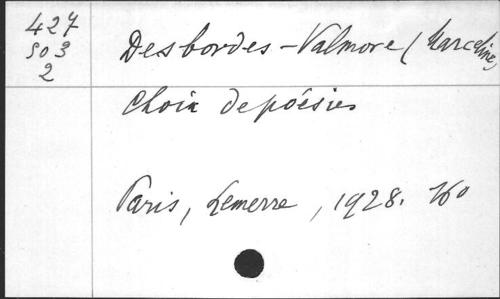 427
503
2
Desbordes-Valmore (Marceline)
Choix de poésies
Paris, Lemerre, 1928. 16o